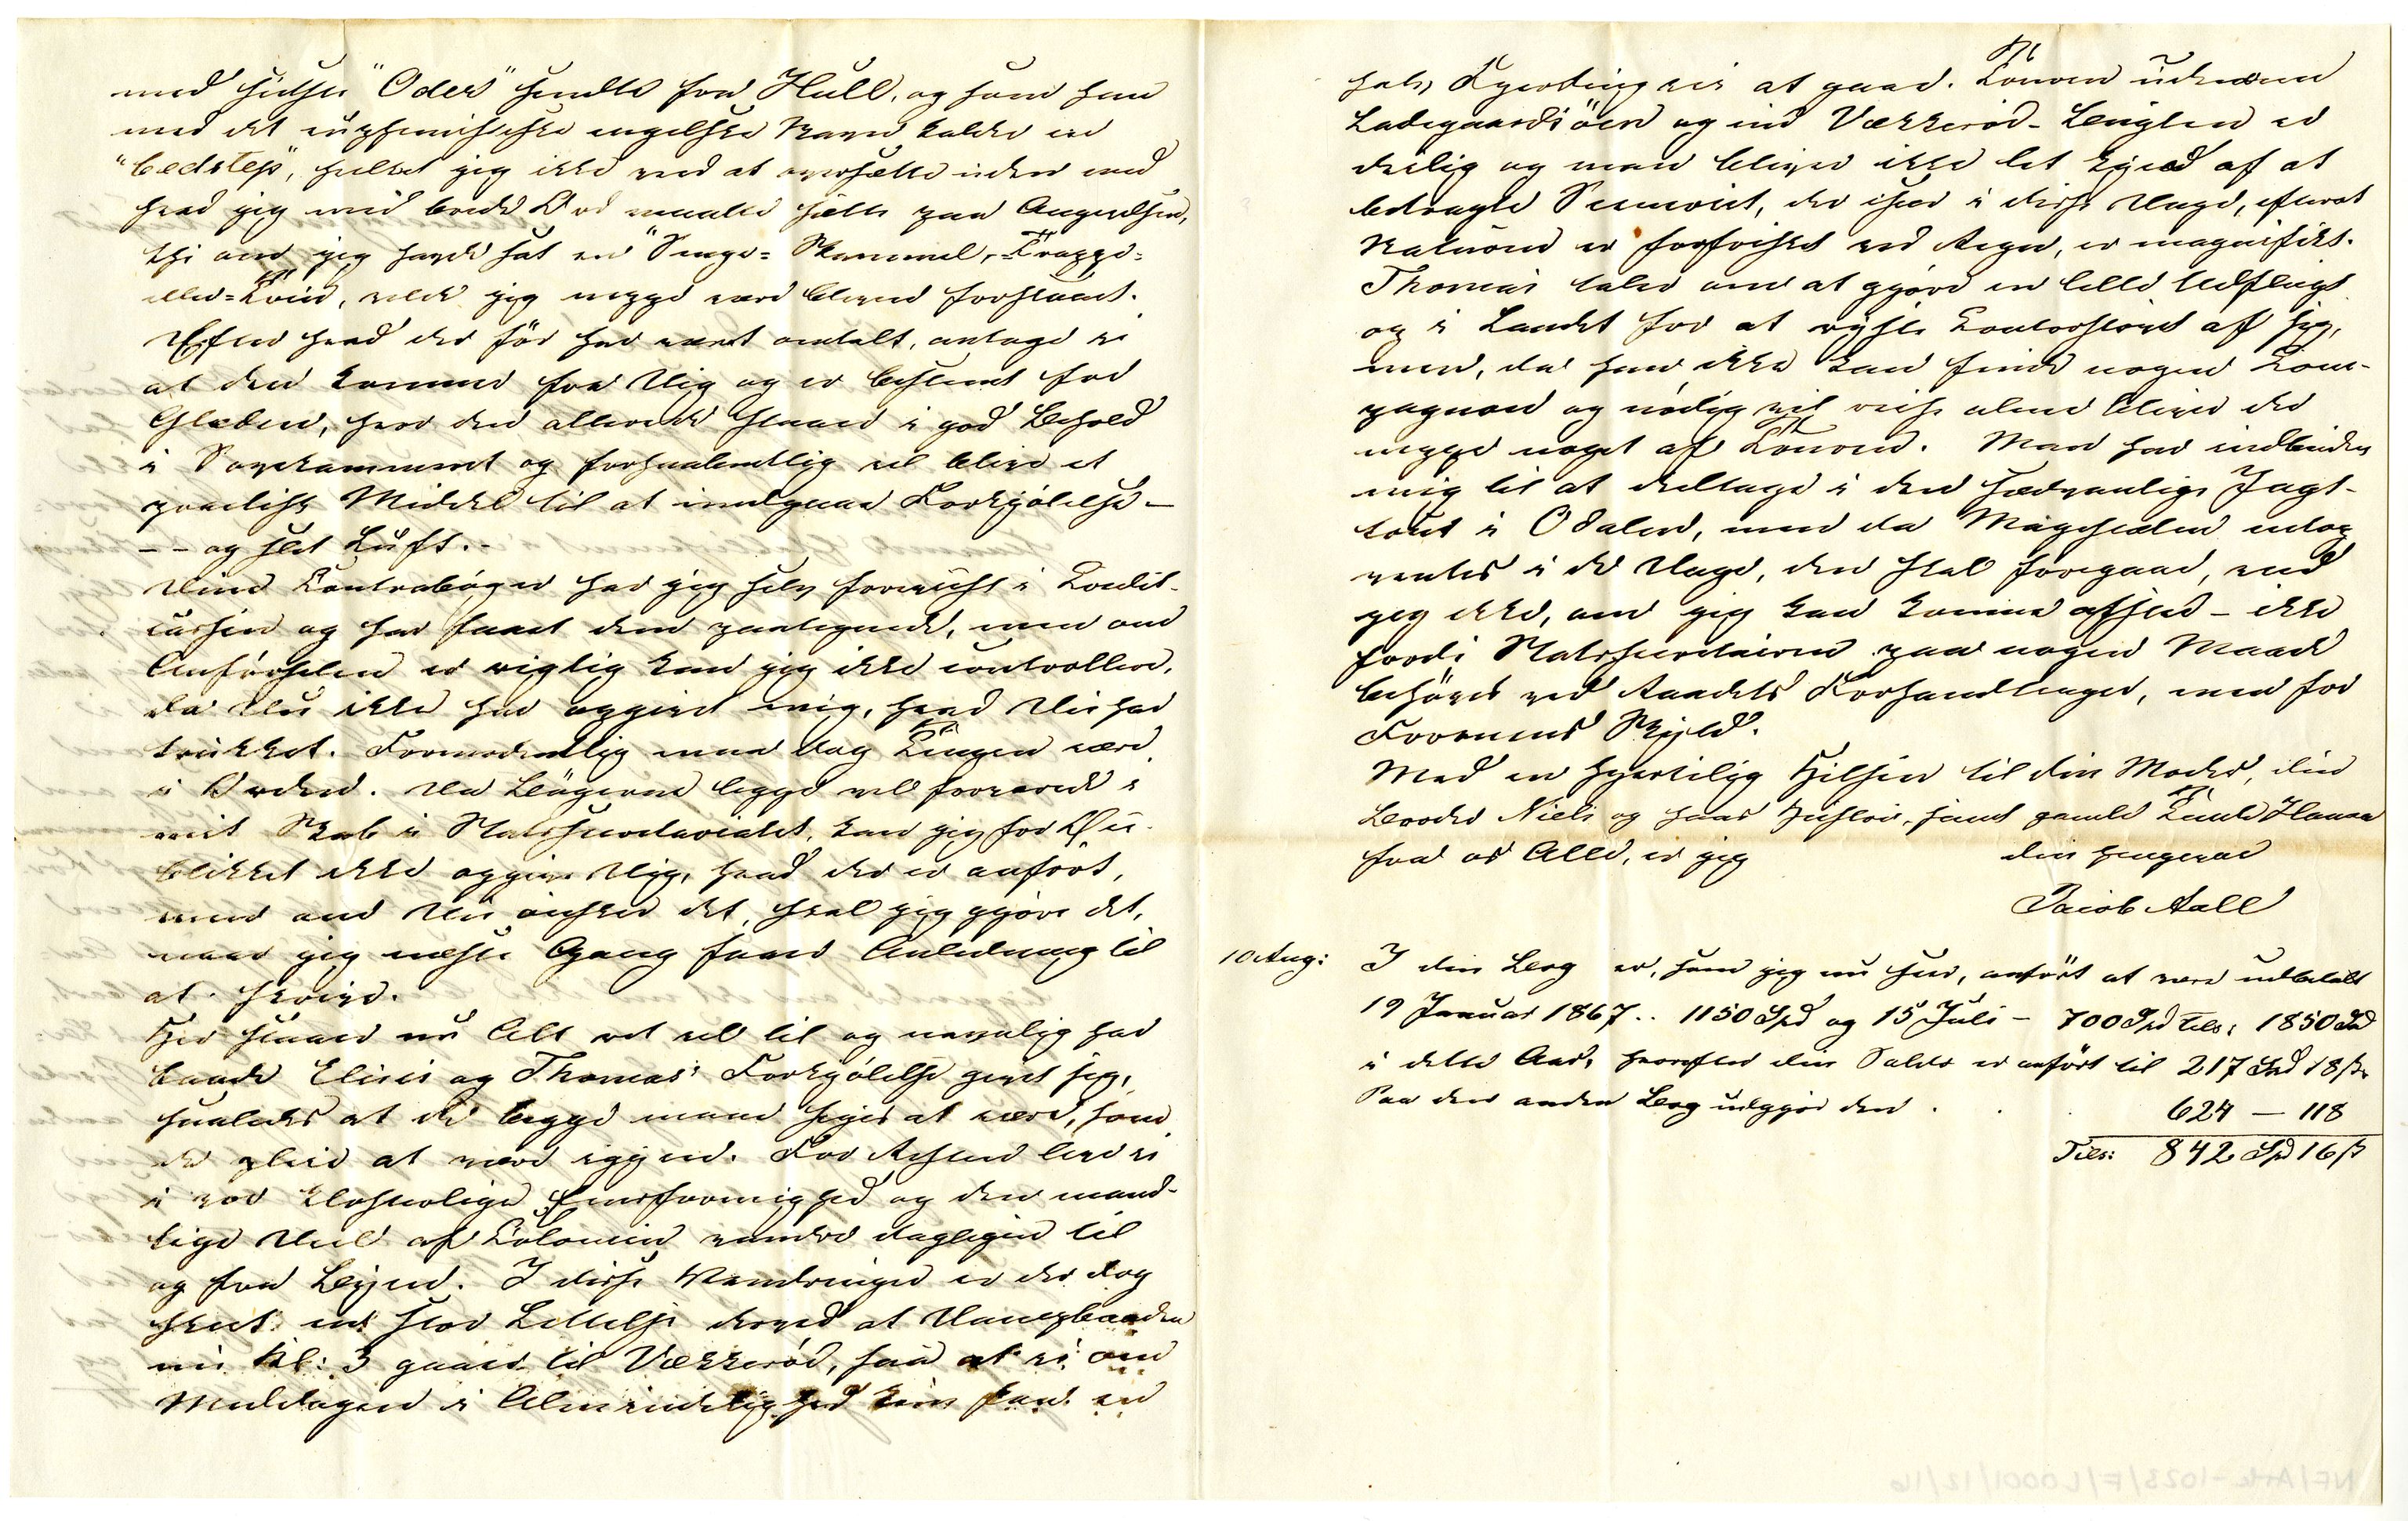 med sidste "Oder" sendte fra Hull, og som han
med det euphemistiske engelske Navn kalder en
"bedstep", hvilket jeg ikke ved at oversætte uden ved
hvad jeg med brede Ord maatte sætte paa Angivelsen,
thi om jeg havde sat en "Senge= Skammel,-Trappe=
eller=Trin, vilde jeg neppe være bleven forstaaet.
Efter hvad der før har været omtalt, antage vi
at den kommer fra Dig og er bestemt for
Glæden, hvor den allerede staaer i god Behold
i Sovekammeret og forhaabentlig vil blive et
practisk Middel til at undgaae Forkjølelse –
– – og slet Luft. –
Dine Contrabøger har jeg selv foreviist i Credit-
cassen og har faaet dem paategnede, men om
Anførselen er rigtig kan jeg ikke controllere,
da Du ikke har opgivet mig, hvad Du har
trukket. Formodentlig maa dog Tingen være
i Orden. Da Bøgerne ligge vel forvarede i
mit Skab i Statssecretariatet, kan jeg for Øie-
blikket ikke opgive Dig, hvad der er anført,
men om Du ønsker det, skal jeg gjøre det,
naar jeg næste Gang faaer Anledning til
at skrive.
Her staaer nu Alt vel til og navnlig har
baade Elises og Thomas' Forkjølelse givet sig,
saaledes at de begge maae siges at være, som
de pleie at være igjen. For Resten leve vi
i vor klosterlige Eensformighed og den mand-
lige Deel af Colonien vandre dagligen til
og fra Byen. I disse Vandringer er der dog
skeet en stor Lettelse derved at Dampbaaden
nu Kl: 3 gaaer til Vækkerød, saa at vi om
Middagen i Almindelighed kun have en
halv Fjerding vei at gaae. Touren udenom
Ladegaardsøen og ind Vækkerød-Bugten er
deilig og man bliver ikke let kjed af at
betragte Sceneriet, der især i disse Dage, efterat
Naturen er forfrisket ved Regn, er magnifikt.
Thomas taler om at gjøre en lille Udflugt
op i Landet for at ryste Contorstøvet af sig,
men, da han ikke kan finde nogen Com-
pagnon og nødig vil reise alene bliver der
neppe noget af Touren. Man har indbuden
mig til at deltage i den sædvanlige Jagt-
tour i Odalen, men da Majestæten netop
ventes i de Dage, den skal foregaae, veed
jeg ikke, om jeg kan komme afsted – ikke
fordi Statssecretairen paa nogen Maade
behøves ved Raadets Forhandlinger, men for
Formens Skyld.
Med en hjertelig Hilsen til din Moder, din
Broder Niels og hans Hustru, samt gamle Tante Hanna
fra os Alle, er jeg din hengivne
Jacob Aall
10 Aug: I din Bog er, som jeg nu seer, anført at være udbetalt
19 Januar 1867.. 1150 Spd og 15 Juli – 700 Spd tils: 1850 Spd
i dette Aar, hvorefter din Saldo er anført til 217 Spd 18 ß
Paa den anden Bog udgjør den . . 624 – 118
Tils: 842 Spd 16 ß
NF/Ark-1023/F/L0001/12/16